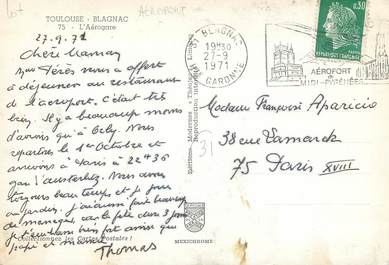 AEROPORT
TOULOUSE - BLAGNAC
75 - L'Aérogare
27.9.71
Chère Maman
Térès nous a offert
à déjeuner au restaurant
de l'aéroport. C'était très
bien. Il y a beaucoup moins
d'avions qu'à Orly. Nous
repartons le 1er Octobre et
arrivons à Paris à 22h36
gare d'Austerlitz. Nous avons
toujours beau temps et je joue
au jardin. J'ai aussi fait beaucoup
de manèges, car la fête dure 3 jours
je t'embrasse bien fort ainsi que
papi et mamie
Thomas
Collectionnez les Cartes Postales !
Editions Modernes « Théojac »
MEXICHROME
31 BLAGNAC
19H30
27-9
1971
HTE GARONNE
AÉROPORT
MIDI-PYRÉNÉES
0,30
31
Madame Françoise Aparicio
38 rue Lamarck
75 Paris XVIII